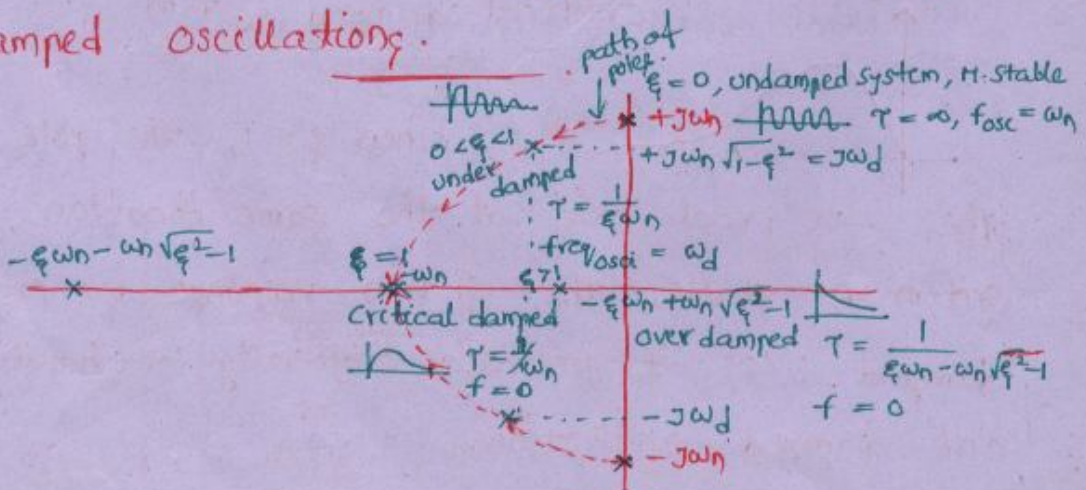 amped oscillations.
path of
poles.
ξ = 0, undamped system, M. stable
+Jωn
τ = ∞, fosc = ωn
0 < ξ < 1
under damped
+Jωn √1-ξ² = Jωd
τ = 1/ξωn
freq osci = ωd
-ξωn - ωn √ξ²-1
ξ = 1
-ωn
ξ > 1
-ξωn + ωn √ξ²-1
critical damped
over damped
τ = 1/ξωn - ωn √ξ²-1
f = 0
f = 0
-Jωd
-Jωn